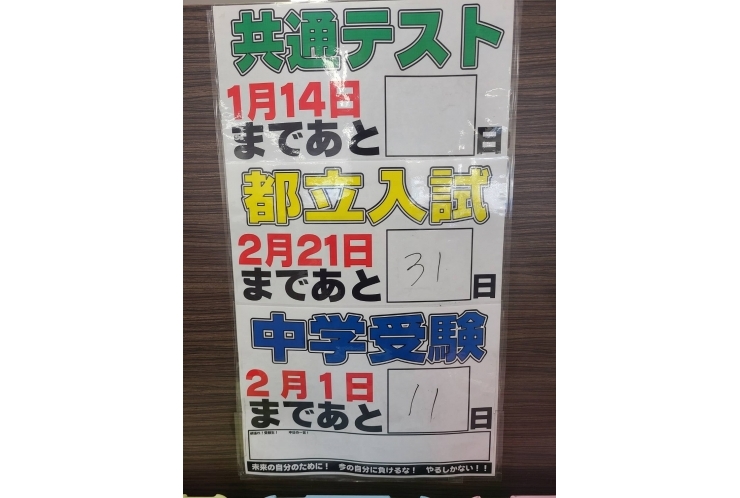 共通テスト
1月14日
まであと 日
都立入試
2月21日
まであと 31 日
中学受験
2月1日
まであと 11 日
未来の自分のために! 今の自分に負けるな! やるしかない!!